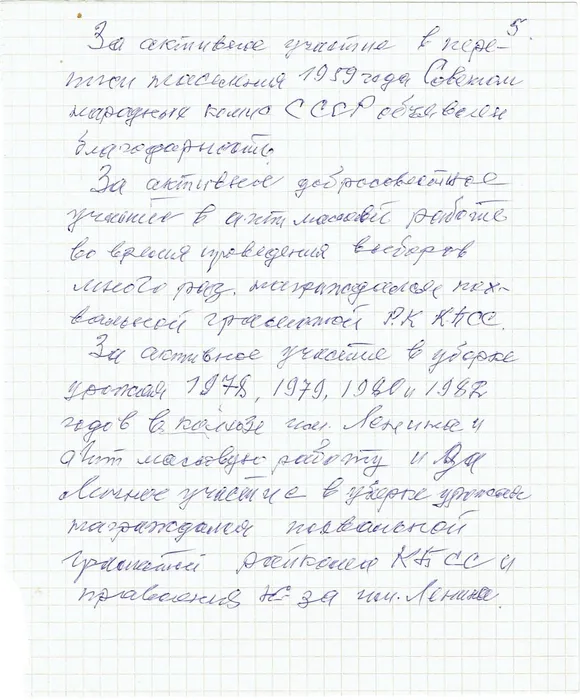 5.
За активное участие в пере-
писи населения 1959 года Советом
народных комис СССР объявлен
благодарность.
За активное добросовестное
участие в агит массовой работе
во время проведения выборов
много раз. награждался пох-
вальной грамотой РК КПСС.
За активное участие в уборке
урожая 1978, 1979, 1980 и 1982
годов в колхозе им. Ленина и
агит массовую работу и за
Личное участие в уборке урожая
награждался похвальной
грамотой райкома КПСС и
правления К-за им. Ленина